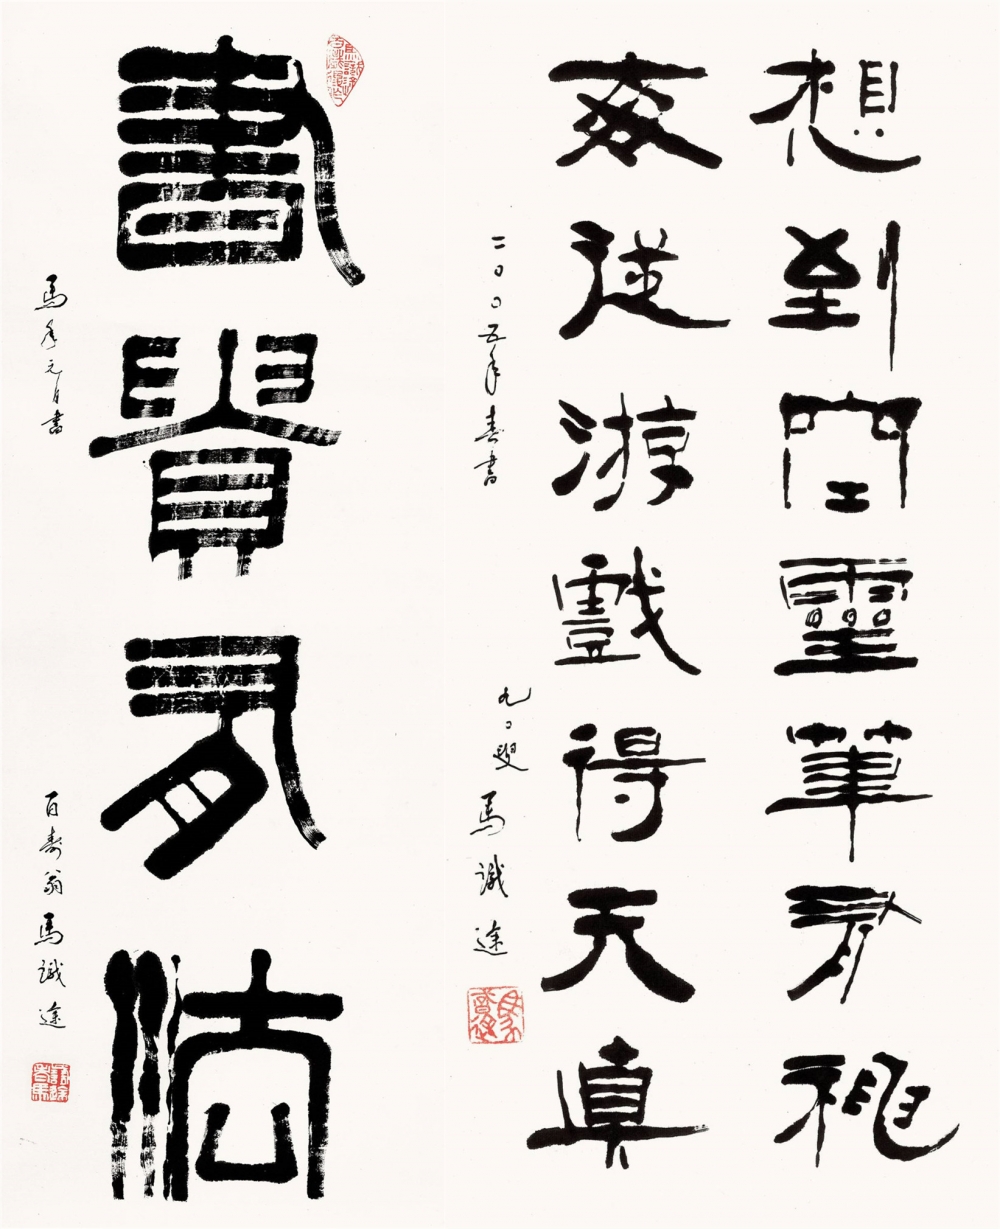 想到空靈筆有神
每從游戲得天真
二〇〇五年春書 九〇叟 馬識途
書貴有法
馬年元日書 百壽翁馬識途